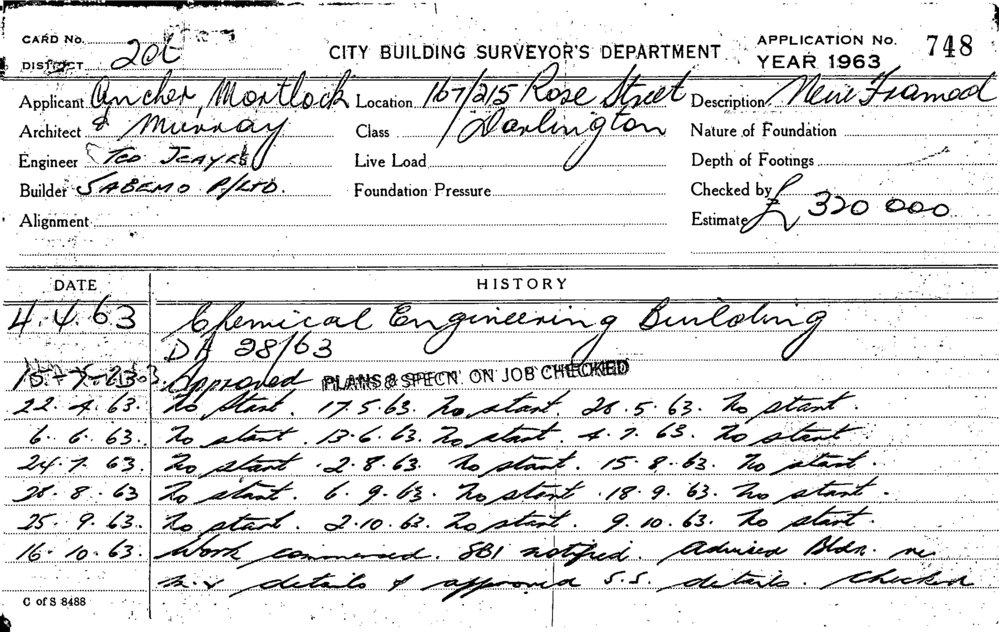 CARD No. CITY BUILDING SURVEYOR'S DEPARTMENT APPLICATION No. 748
DISTRICT 20t YEAR 1963
Applicant Ancher, Mortlock Location 167/215 Rose Street Description New Framed
Architect & Murray Class Darlington Nature of Foundation
Engineer Live Load Depth of Footings
Builder SABEMO P/LTD. Foundation Pressure Checked by
Alignment Estimate £ 320 000
DATE HISTORY
4.4.63 Chemical Engineering Building
DA 28/63
Approved PLANS & SPECN. ON JOB CHECKED
22.4.63. No start. 17.5.63. No start. 28.5.63. No start.
6.6.63. No start. 13.6.63. No start. 4.7.63. No start.
24.7.63. No start. 2.8.63. No start. 15.8.63. No start.
28.8.63 No start. 6.9.63. No start. 18.9.63. No start.
25.9.63. No start. 2.10.63. No start. 9.10.63. No start.
16.10.63. Work commenced. SBI notified. Advised Bldr. re
details & approved S.S. details. Checked
C of S 8488